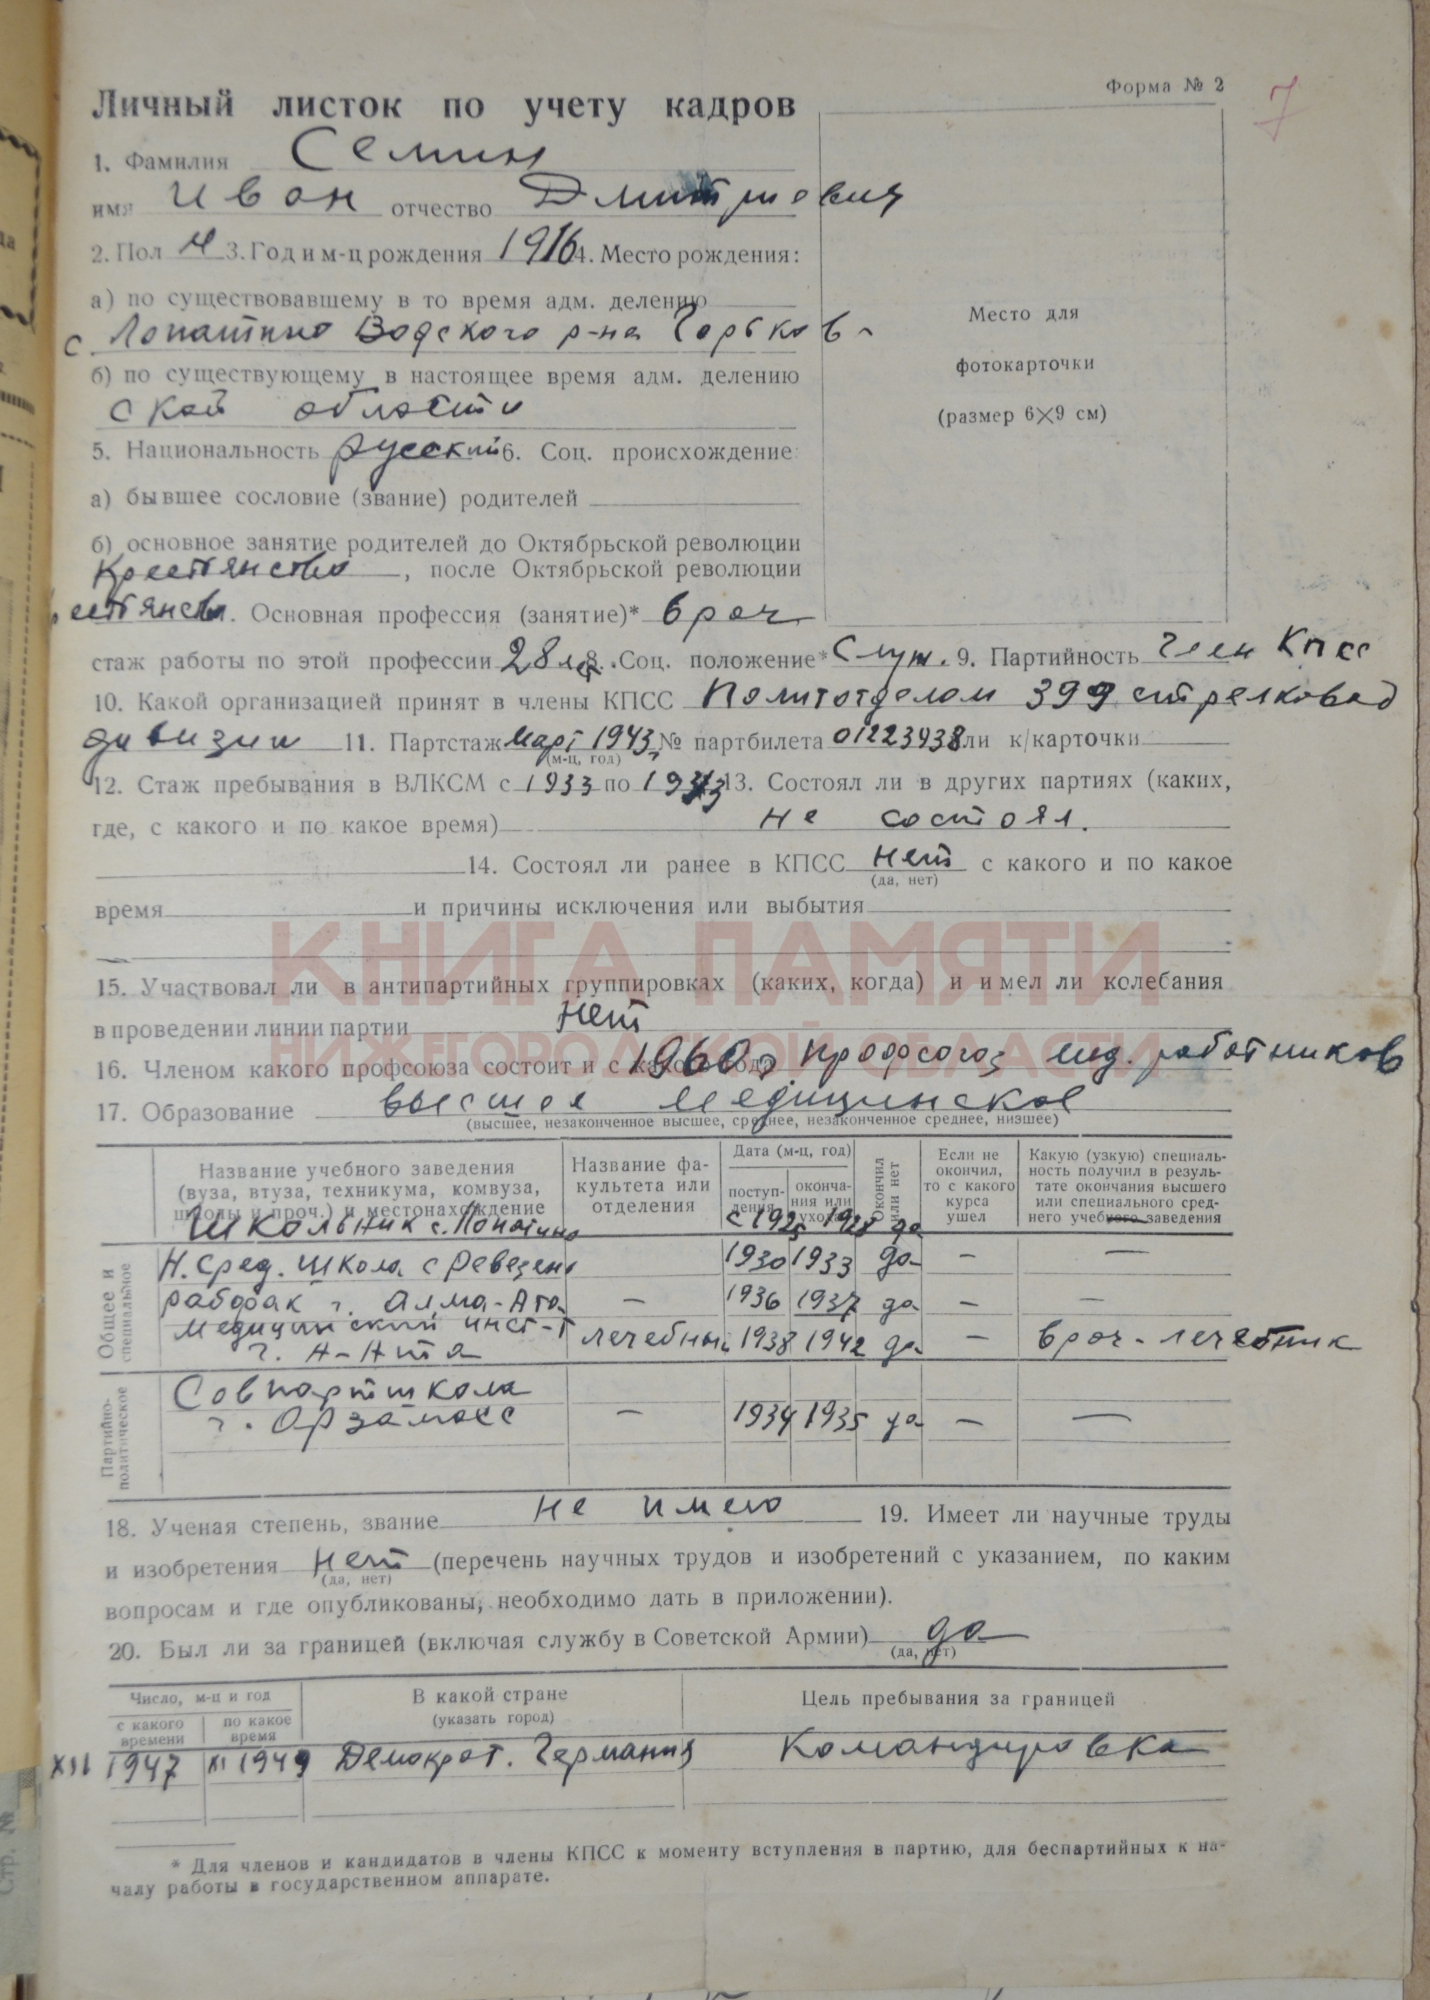 Форма № 2
7
Личный листок по учету кадров
1. Фамилия Семин
имя Иван отчество Дмитриевич
2. Пол м 3. Год и м-ц рождения 1916 4. Место рождения:
а) по существовавшему в то время адм. делению
с Лопатино Водского р-на Горьков-
б) по существующему в настоящее время адм. делению
ской области
5. Национальность русский 6. Соц. происхождение:
а) бывшее сословие (звание) родителей
б) основное занятие родителей до Октябрьской революции
Крестьянство, после Октябрьской революции
. Основная профессия (занятие)* врач
стаж работы по этой профессии 28 л. 8. Соц. положение* Служ. 9. Партийность Член Кпсс
10. Какой организацией принят в члены КПСС Политотделом 399 стрелковой
дивизии 11. Партстаж март 1943 № партбилета 01223938 ли к/карточки
(м-ц, год)
12. Стаж пребывания в ВЛКСМ с 1933 по 1943 13. Состоял ли в других партиях (каких,
где, с какого и по какое время) не состоял.
14. Состоял ли ранее в КПСС нет с какого и по какое
(да, нет)
время и причины исключения или выбытия
КНИГА ПАМЯТИ
15. Участвовал ли в антипартийных группировках (каких, когда) и имел ли колебания
в проведении линии партии нет
НИЖЕГОРОДСКОЙ ОБЛАСТИ
16. Членом какого профсоюза состоит и с какого года 1960 г Профсоюз мед. работников
17. Образование высшее медицинское
(высшее, незаконченное высшее, среднее, незаконченное среднее, низшее)
Название учебного заведения (вуза, втуза, техникума, комвуза, школы и проч.) и местонахождение
Название факультета или отделения
Дата (м-ц, год)
поступления
окончания или ухода
Окончил или нет
Если не окончил, то с какого курса ушел
Какую (узкую) специальность получил в результате окончания высшего или специального среднего учебного заведения
Общее и специальное
Школьник с. Лопатино с 1925 1928 да
Н. Сред. школа с Ревезень 1930 1933 да — —
рабфак г. Алма-Ата — 1936 1937 да — —
Медицинский инст-т лечебный 1938 1942 да — врач-лечебник
г. А-Ата
Партийно-политическое
Совпартшкола
г. Арзамасс — 1934 1935 да — —
18. Ученая степень, звание не имею 19. Имеет ли научные труды
и изобретения нет (перечень научных трудов и изобретений с указанием, по каким
(да, нет)
вопросам и где опубликованы, необходимо дать в приложении).
20. Был ли за границей (включая службу в Советской Армии) да
(да, нет)
Число, м-ц и год
с какого времени
по какое время
В какой стране
(указать город)
Цель пребывания за границей
XII 1947 XI 1949 Демократ. Германия Командировка
* Для членов и кандидатов в члены КПСС к моменту вступления в партию, для беспартийных к на-
чалу работы в государственном аппарате.